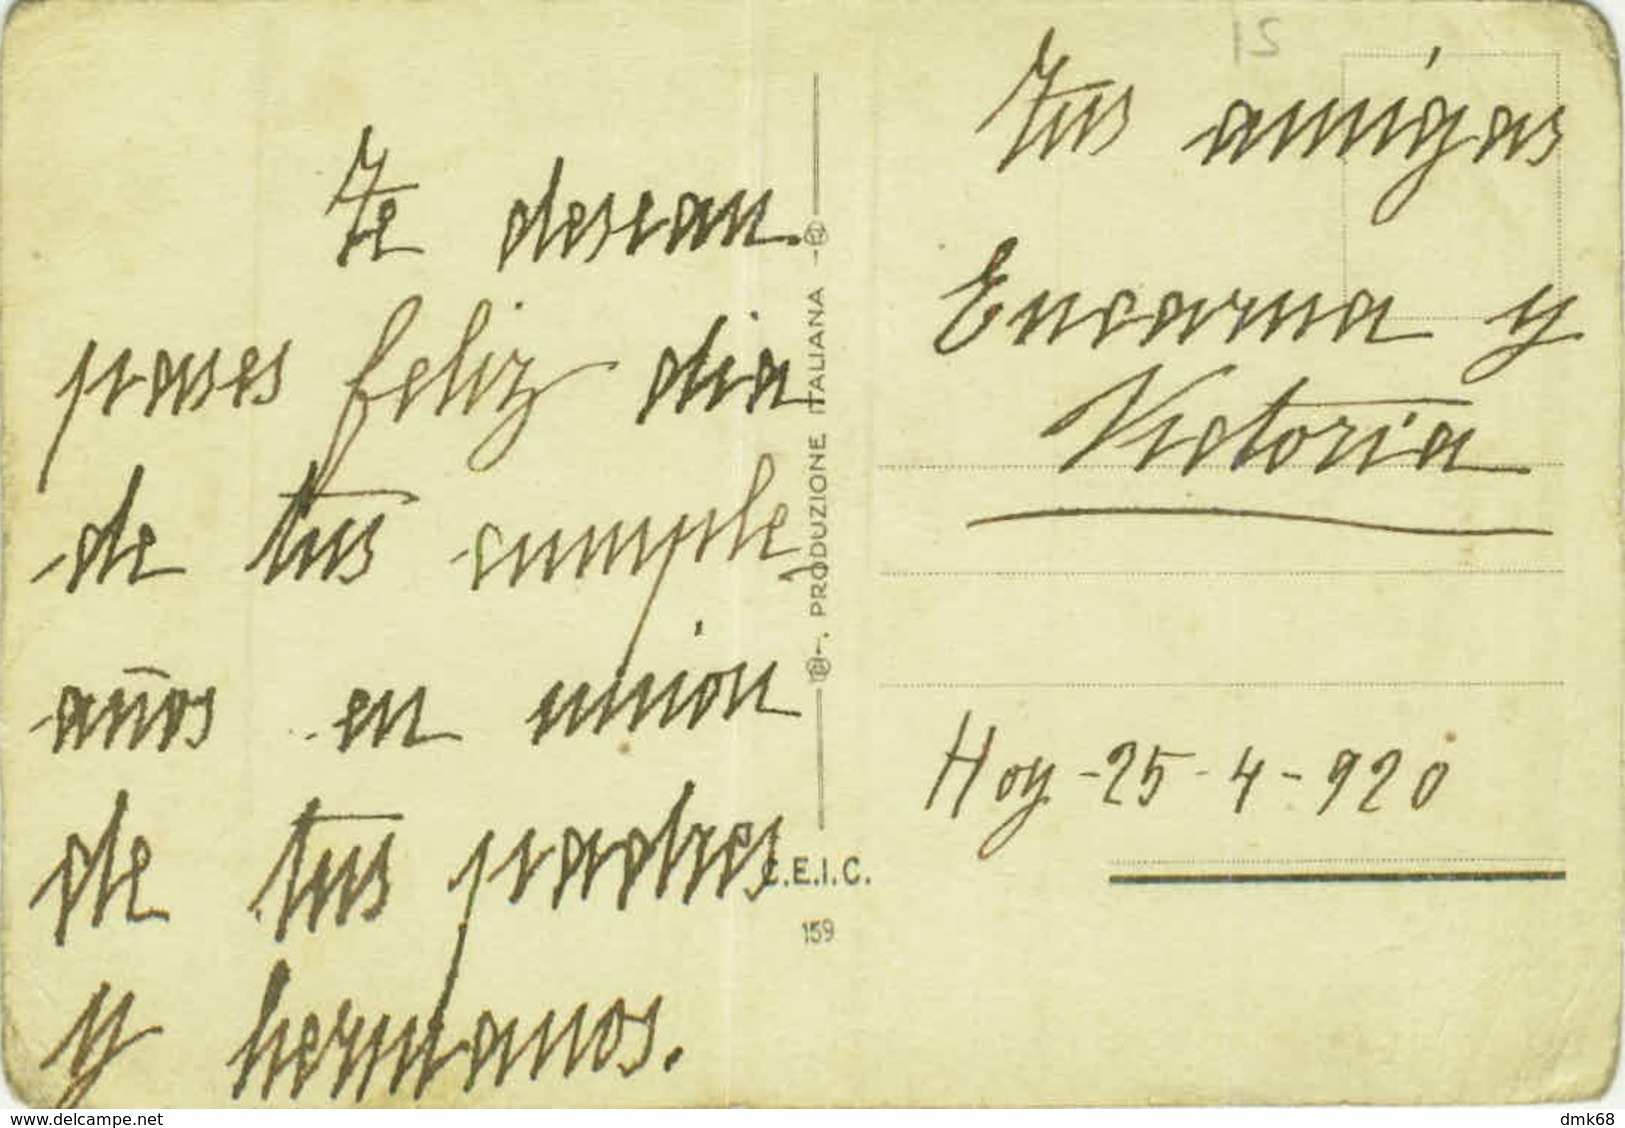 Te desean
pases feliz dia
de tus cumple
años en unión
de tus padres
y hermanos.
PRODUZIONE ITALIANA
C.E.I.C.
159
15
Tus amigas
Encarna y
Victoria
Hoy -25-4-920
www.delcampe.net
dmk68